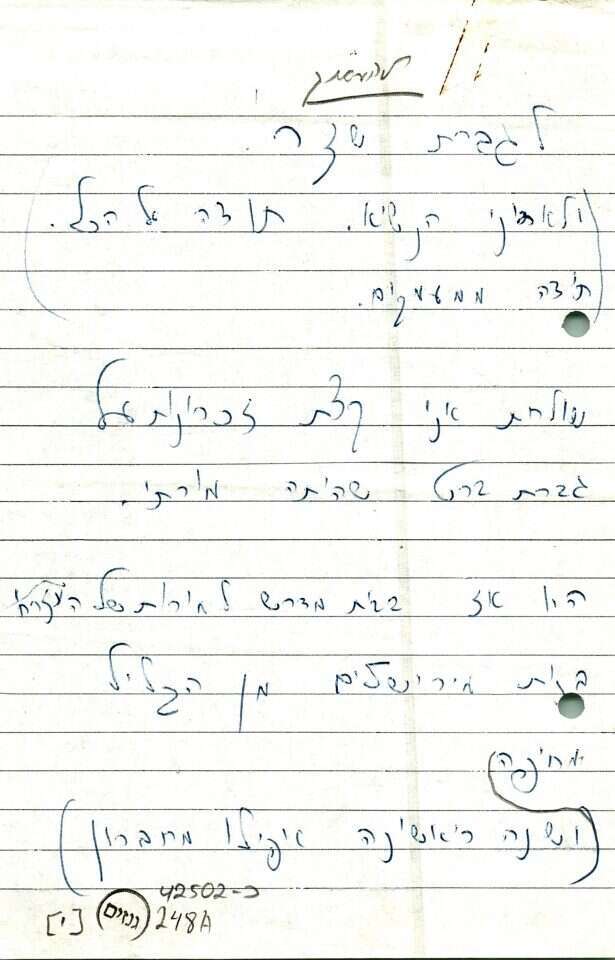 להעתיק
לגברת שזר.
(ולאדוני הנשיא. תודה על הכל.
תודה ממעמקים.)
שולחת אני קצת זכרונות על
גברת שהיתה מורתי.
היו אז בבית מדרש למורות של
בנות מירושלים מן הגליל
מחיפה
(ושנה ראשונה אפילו מחברון)
42502-כ
[י] גנזים 248A